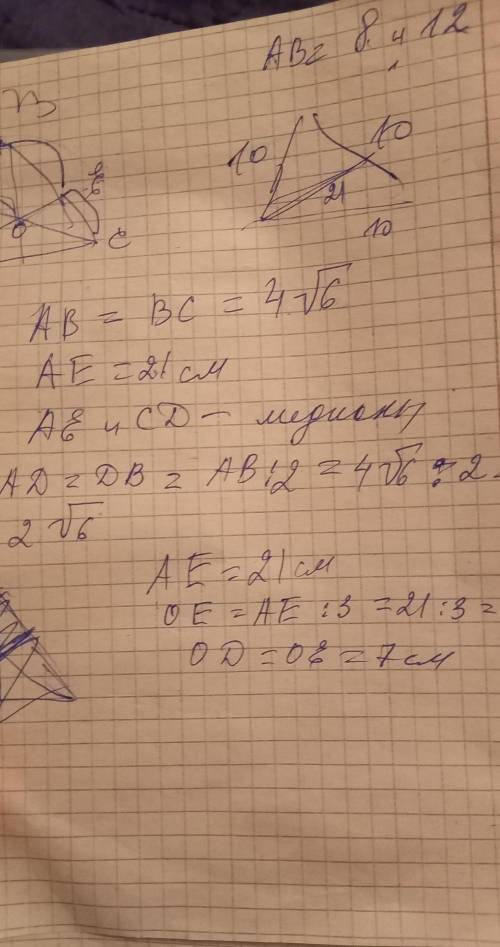 AB = 8 и 12
B
10
10
E
21
O
C
10
AB = BC = 4√6
AE = 21 см
AE и CD – медианы
AD = DB = AB : 2 = 4√6 : 2 -
2√6
AE = 21 см
OE = AE : 3 = 21 : 3 =
OD = OE = 7 см